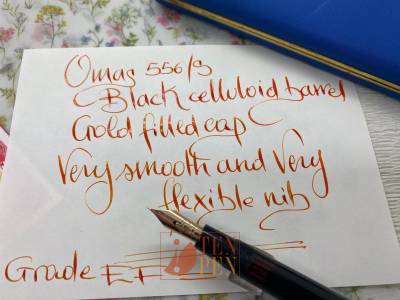 Omas 556/S
Black celluloid barrel
Gold filled cap
Very smooth and Very
flexible nib
Grade EF
TEN
PEN